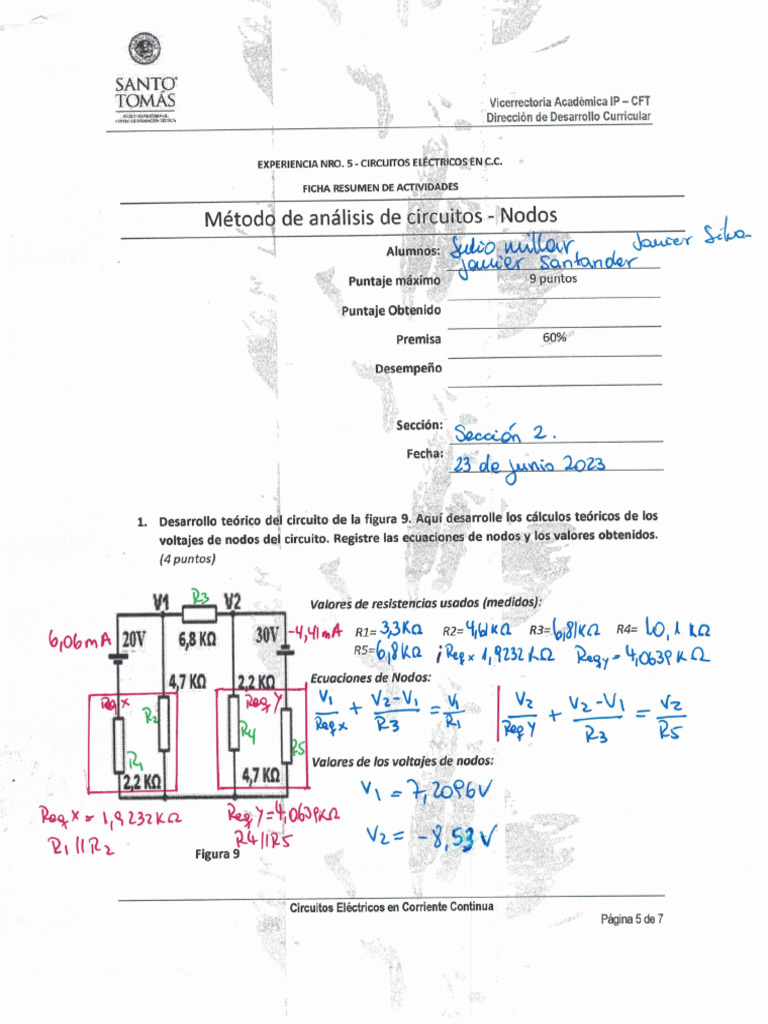 SANTO
TOMÁS
Vicerrectoria Académica IP – CFT
Dirección de Desarrollo Curricular
EXPERIENCIA NRO. 5 - CIRCUITOS ELÉCTRICOS EN C.C.
FICHA RESUMEN DE ACTIVIDADES
Método de análisis de circuitos - Nodos
Alumnos: Julio millar Javier Silva
Javier Santander
Puntaje máximo 9 puntos
Puntaje Obtenido
Premisa 60%
Desempeño
Sección: Sección 2.
Fecha: 23 de junio 2023
1. Desarrollo teórico del circuito de la figura 9. Aquí desarrolle los cálculos teóricos de los
voltajes de nodos del circuito. Registre las ecuaciones de nodos y los valores obtenidos.
(4 puntos)
V1 R3 V2
6,06mA 20V 6,8 KΩ 30V -4,41mA
4,7 KΩ 2,2 KΩ
Req X Req Y
R2 R4 R5
R1
2,2 KΩ 4,7 KΩ
Req X = 1,9232KΩ Req Y = 4,0639KΩ
R1//R2 R4//R5
Figura 9
Valores de resistencias usados (medidos):
R1= 3,3KΩ R2= 4,61KΩ R3= 6,81KΩ R4= 10,1 KΩ
R5= 6,8KΩ ; Req x 1,9232KΩ Req y = 4,0639KΩ
Ecuaciones de Nodos:
V1/Req x + V2-V1/R3 = V1/R1 | V2/Req Y + V2-V1/R3 = V2/R5
Valores de los voltajes de nodos:
V1 = 7,2096V
V2 = -8,53V
Circuitos Eléctricos en Corriente Continua
Página 5 de 7